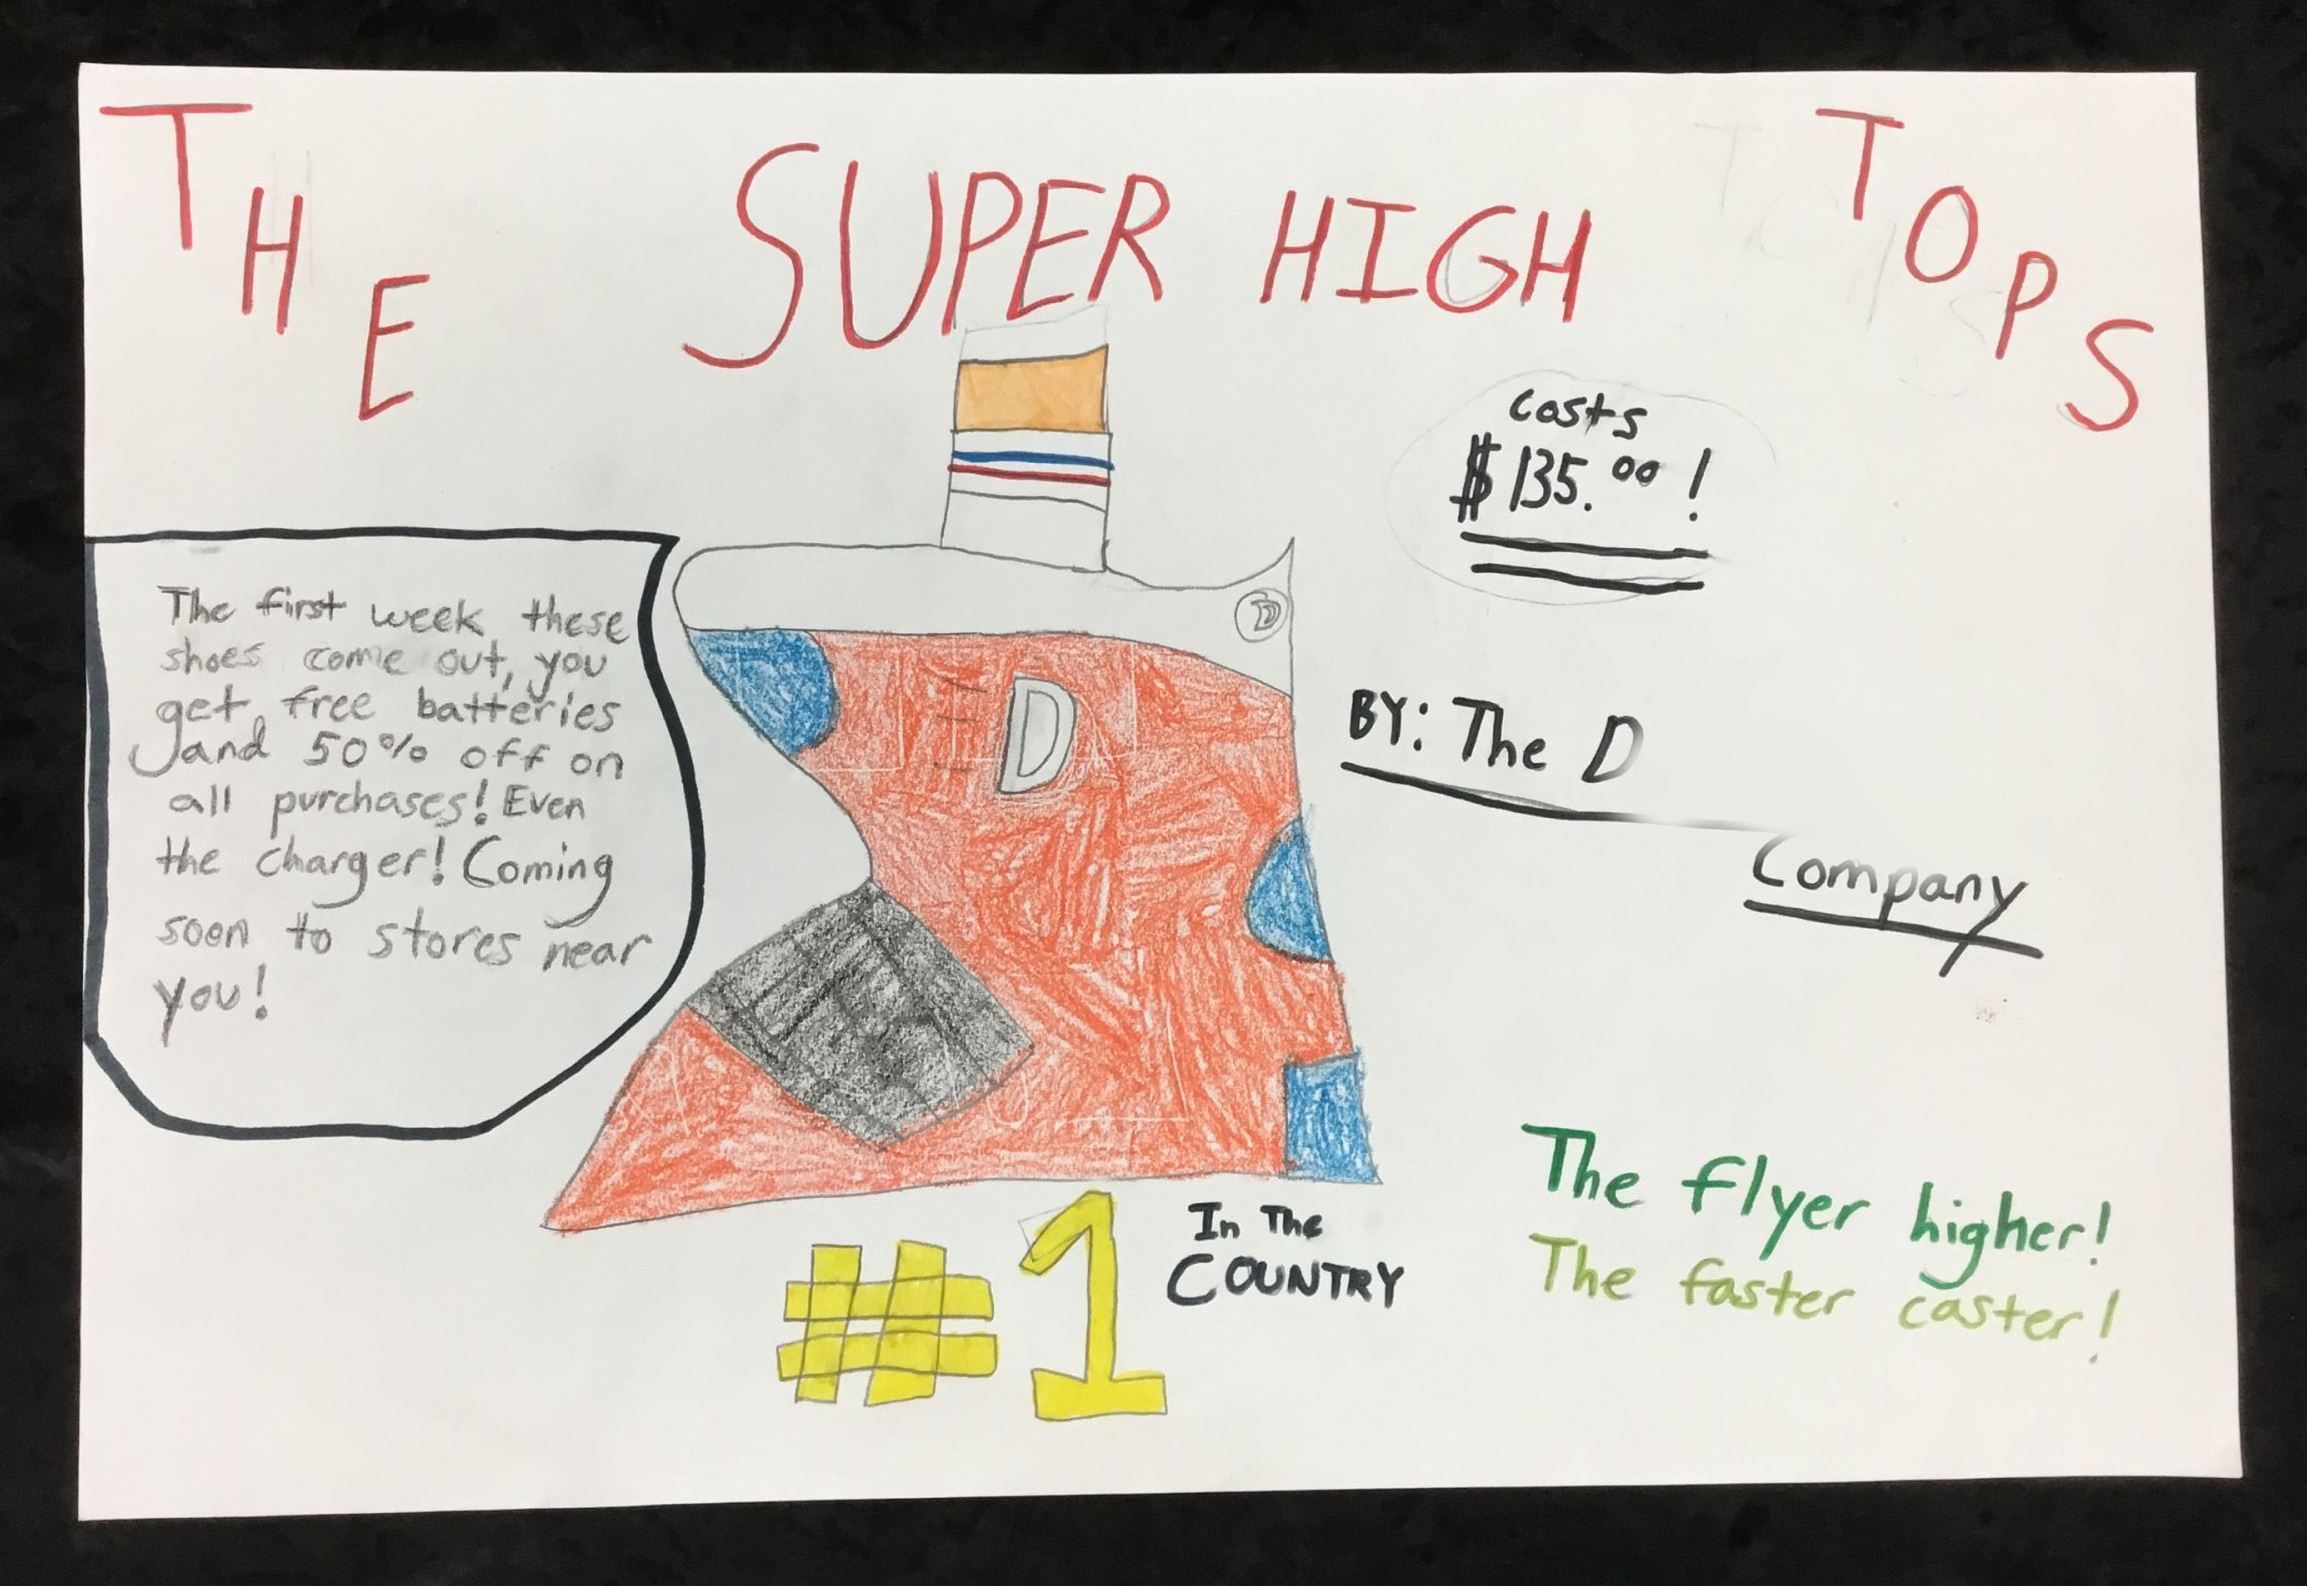 THE SUPER HIGH TOPS
costs
$135.00!
The first week these
shoes come out, you
get free batteries
and 50% off on
all purchases! Even
the charger! Coming
soon to stores near
you!
D
D
BY: The D
Company
#1 In The
COUNTRY
The flyer higher!
The faster caster!